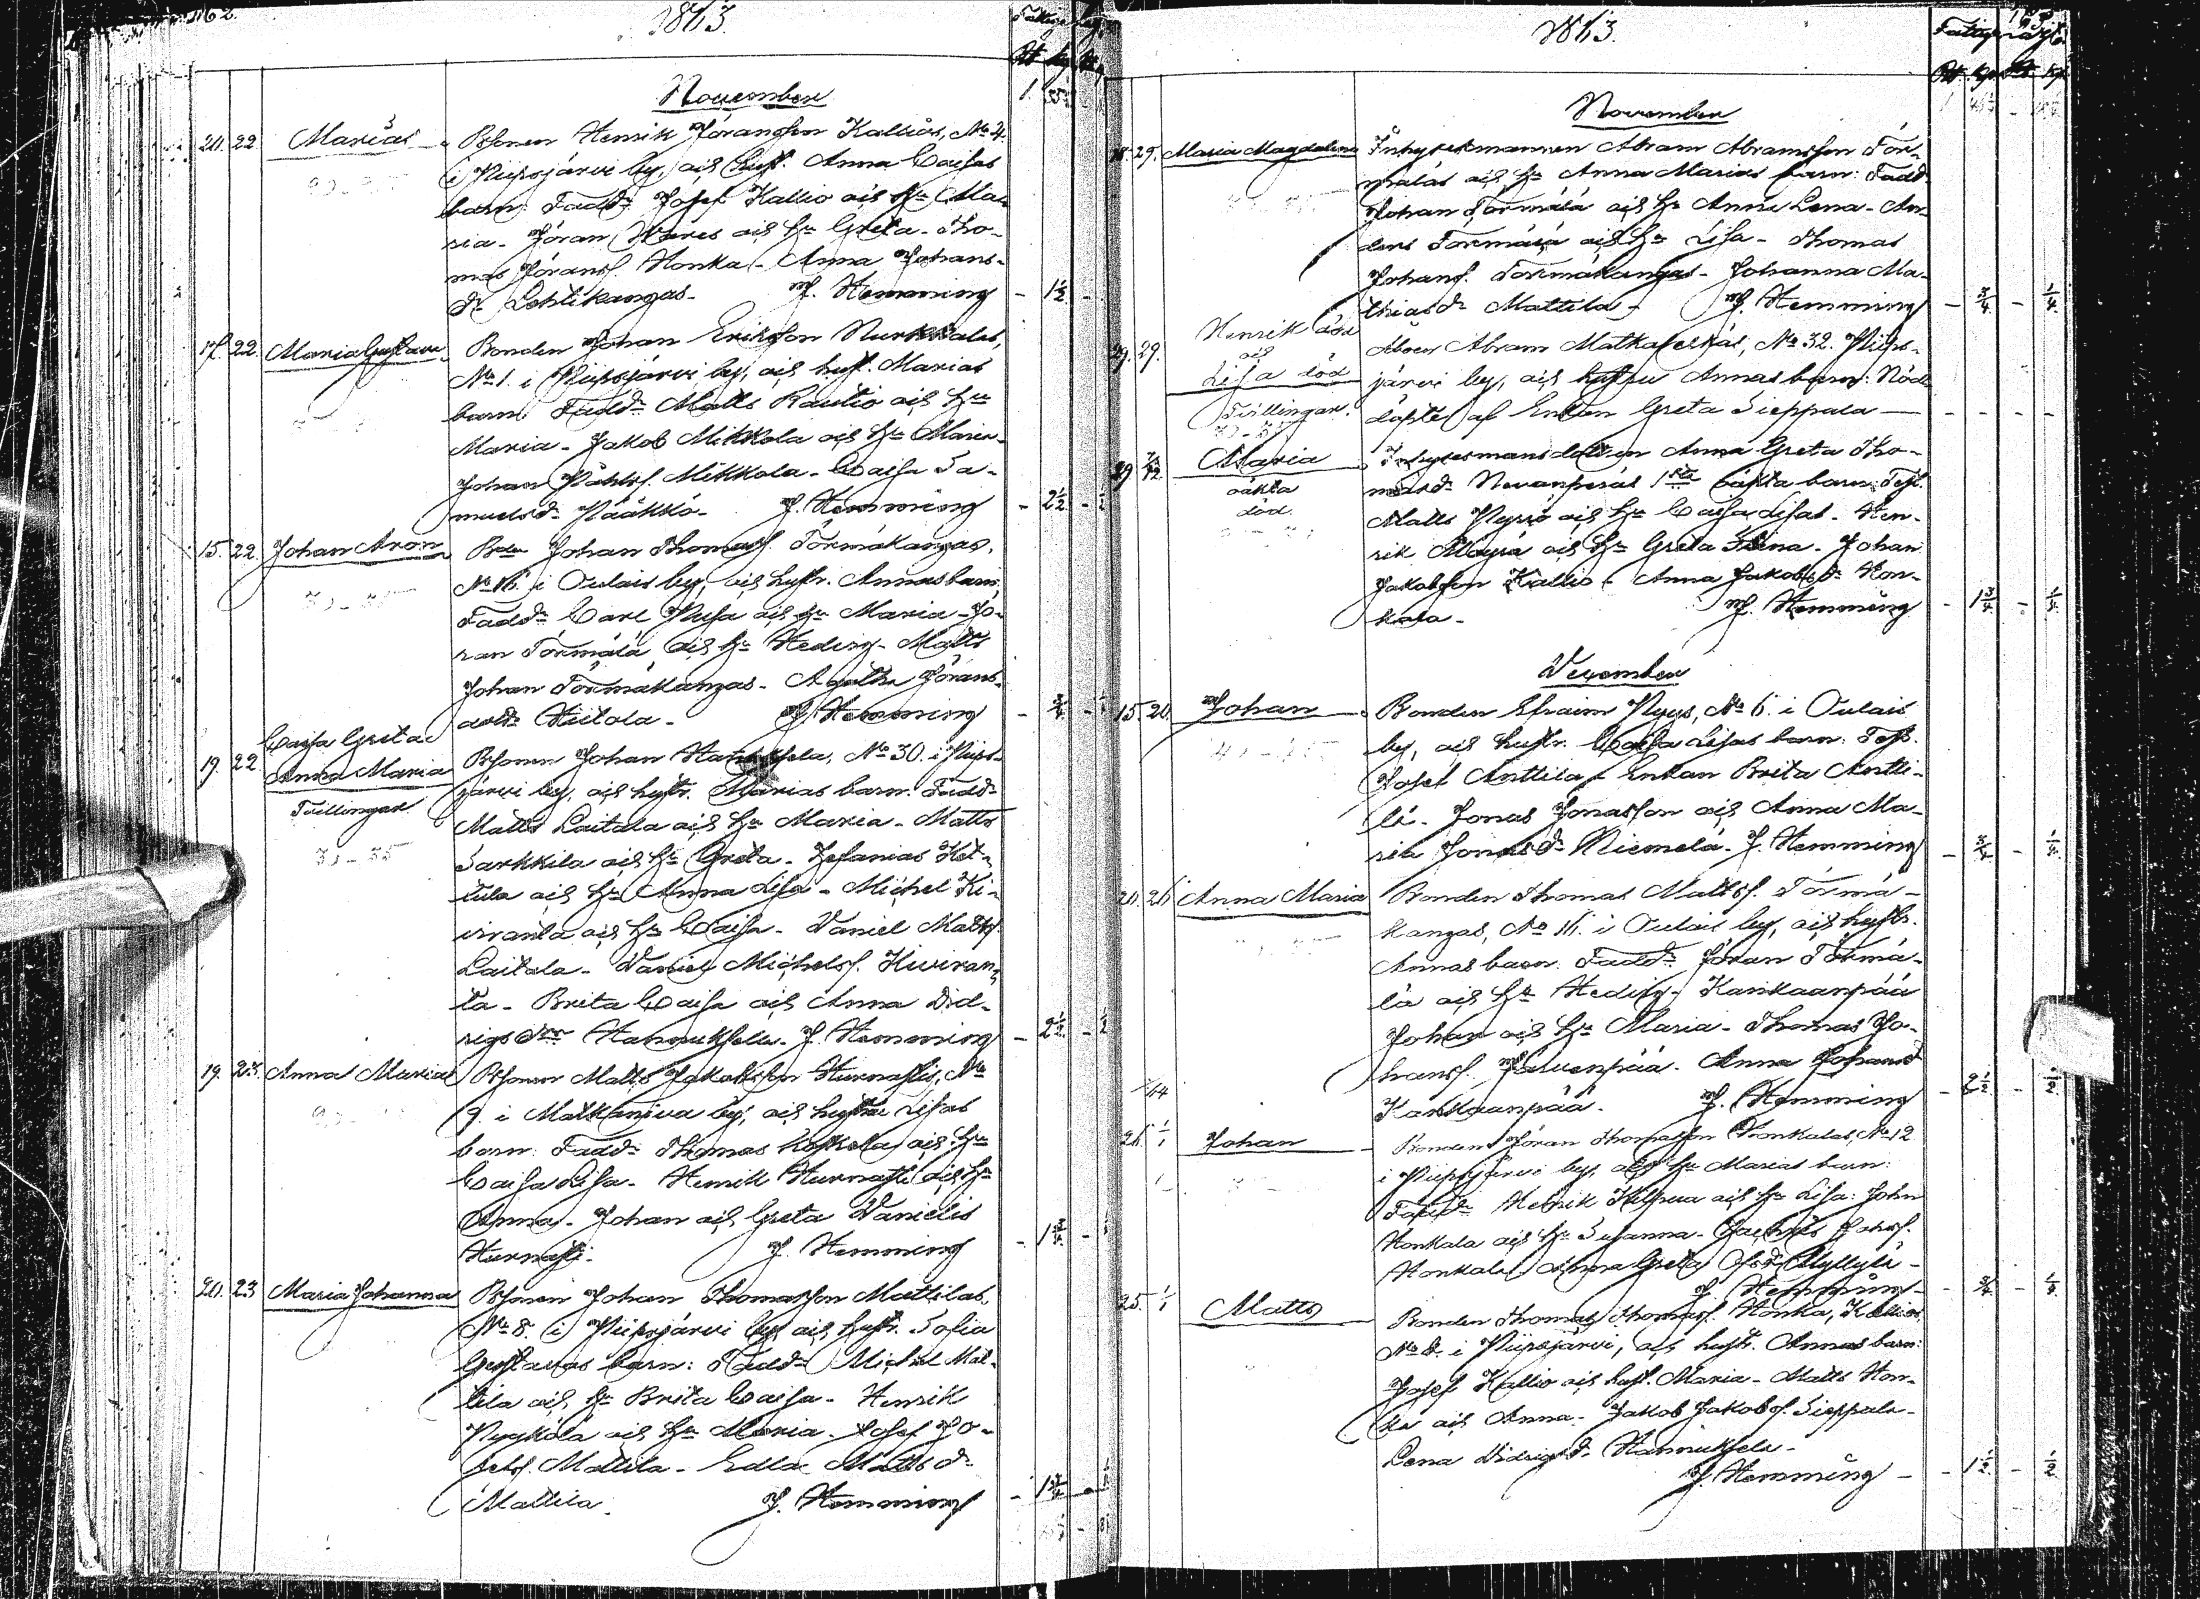 162.
1863.
November
20. 22. Marias
Bonden Henrik Jöransson Kallios, No 4.
i Piipsjärvi by, och hust. Anna Caisas
barn: Fadd. Josef Kallio och Hu Ma-
ria - Jöran Wares och Hu Greta - Tho-
mas Jöranss. Honka - Anna Johans-
dr Lehtikangas - J. Hemming - 1½ -
17. 22. Maria Gustava
Bonden Johan Eriksson Nurkkalas,
No 1. i Piipsjärvi by, och hust. Marias
barn: Fadd. Matts Rautio och Hu
Maria - Jakob Mikkola och Hu Maria -
Johan Påhlss. Mikkola - Caisa Sa-
muelsdr Pääkkö - J. Hemming - 2½ -
15. 22. Johan Aron
Bden Johan Thomass. Törmäkangas,
No 16 i Oulais by, och hustr. Annas barn,
Fadd. Carl Pusa och Hu Maria - Jö-
ran Törmälä och Hu Hedvig - Matts
Johan Törmäkangas - Agatha Jörans-
dotr Hiitola - J. Hemming - ¾ -
19. 22. Caisa Greta
Anna Maria
Tvillingar
Bonden Johan Hannuksela, No 30. i Piips-
järvi by, och hustr. Marias barn: Fadd.
Matts Laitala och Hu Maria - Matts
Sarkkila och Hu Greta - Zefanias Ket-
tula och Hu Anna Lisa - Michel Ki-
viranta och Hu Caisa - Daniel Mattss.
Laitala - Daniel Michelss. Kiviran-
ta - Brita Caisa och Anna Did-
rigsdr Hannuksela - J. Hemming - 2½ - ½
19. 23. Anna Maria
Bonden Matts Jakobsson Hurnastis, No
9. i Matkaniva by, och hustru Lisas
barn: Fadd. Thomas Koskela och Hu
Caisa Lisa - Henrik Hurnasti och Hu
Anna - Johan och Greta Danielis
Hurnasti - J. Hemming
20. 23 Maria Johanna
Bonden Johan Thomasson Mattilas,
No 8. i Piipsjärvi by, och hustr. Sofia
Gustavas barn: Fadd. Michel Mat-
tila och Hu Brita Caisa - Henrik
Pyykölä och Hu Maria - Josef Jo-
sefss. Mattila - Edla Mattsdr
Mattila. J. Hemming
1863.
November
29. Maria Magdalena
Inhysesmannen Abram Abramsson Tör-
mäläs och Hu Anna Marias barn: Fadd.
Johan Törmälä och Hu Anna Lena - An-
ders Törmälä och Hu Lisa - Thomas
Johanss. Törmäkangas - Johanna Ma-
thiasdr Mattila - J. Hemming - ¾ - ¼
29. 29. Henrik död
och
Lisa död
Tvillingar.
Abram Matkaselkäs, No 32. Piips-
järvi by, och hustru Annas barn: Nöd-
döpte af Enkan Greta Sieppala - - - - -
29. Maria
oäkta
död.
Inhysesmansdottren Anna Greta Tho-
masdr Nevanperäs 1sta oäkta barn: Test.
Matts Pyrrö och Hu Caisa Lisas - Hen-
rik Mäyrä och Hu Greta Stina - Johan
Jakobsson Kallio - Anna Jakobsdr Hon-
kala - J. Hemming - 1¾ - ¼
December
15. 20. Johan
Bonden Efraim Pyys, No 6. i Oulais
by, och hustr. Caisa Lisas barn: Test.
Josef Anttila - Enkan Brita Antti-
la - Jonas Jonasson och Anna Ma-
ria Jonasdr Niemelä - J. Hemming - ¾ - ¼
20. 26 Anna Maria
Bonden Thomas Mattss. Törmä-
kangas, No 16. i Oulais by, och hustr.
Annas barn: Fadd. Jöran Törmä-
lä och Hu Hedvig - Kankaanpää
Johan och Hu Maria - Thomas Jo-
hanss. Järvenpää - Anna Johansdr
Kankaanpää. J. Hemming - 2½ - ½
26. 1/1 Johan
Bonden Jöran Thomasson Honkalas, No 12
i Piipsjärvi by, och Hu Marias barn:
Fadd. Henrik Kilpua och Hu Lisa: John
Honkala och Hu Susanna - Johss.
Honkala - Anna Greta Myllylä -
J. Hemming - ¾ - ¼
25. 1/1 Matts
Bonden Thomas Thomass. Honka, Kallios,
No 4. i Piipsjärvi, och hustr. Annas barn:
Josef Kallio och hust. Maria - Matts Hon-
ka och Anna - Jakob Jakobss. Sieppala -
Lena Didrigsdr Hannuksela -
J. Hemming - 1½ - ½